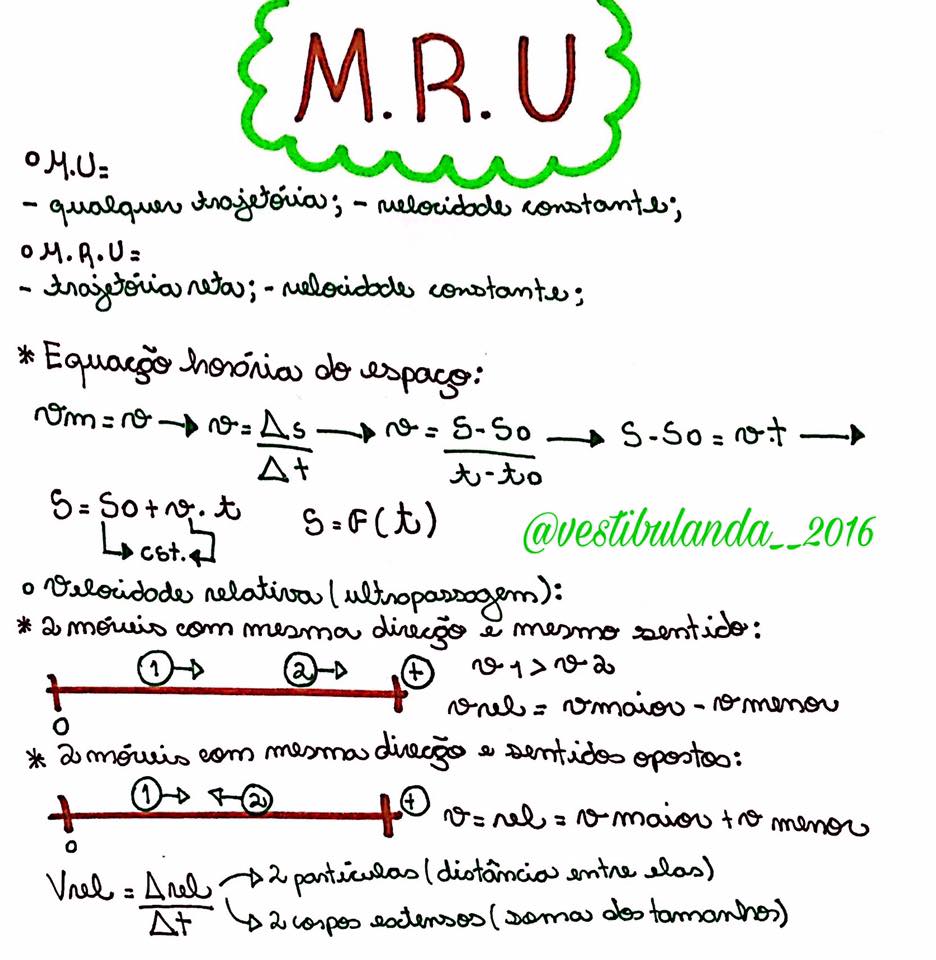 M.R.U
o M.U=
- qualquer trajetória; - velocidade constante;
o M.R.U=
- trajetória reta; - velocidade constante;
* Equação horária do espaço:
vm = v → v = Δs/Δt → v = S-So/t-to → S-So = v.t →
S = So + v.t S = F(t)
cst.
@vestibulanda__2016
o Velocidade relativa (ultrapassagem):
* 2 móveis com mesma direção e mesmo sentido:
1 → 2 → + v1 > v2
0 vrel = vmaior - vmenor
* 2 móveis com mesma direção e sentidos opostos:
1 → ← 2 + v=rel = vmaior + v menor
0
Vrel = Δrel/Δt → 2 partículas (distância entre elas)
→ 2 corpos extensos (soma dos tamanhos)